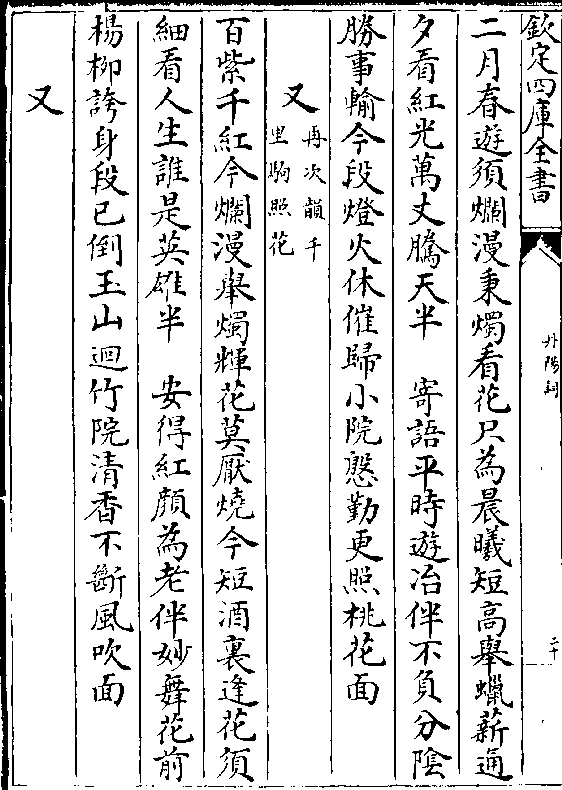 欽定四庫全書
丹陽詞
二十
二月春遊須爛漫秉燭看花只為晨曦短高舉蠟薪通
夕看紅光萬丈騰天半　寄語平時遊冶伴不負分陰
勝事輸今段燈火休催歸小院慇勤更照桃花面
又再次韻千
里駒照花
百紫千紅今爛漫舉燭輝花莫厭燒令短酒裏逢花須
細看人生誰是英雄半　安得紅顏為老伴妙舞花前
楊柳誇身段已倒玉山迴竹院清香不斷風吹面
又